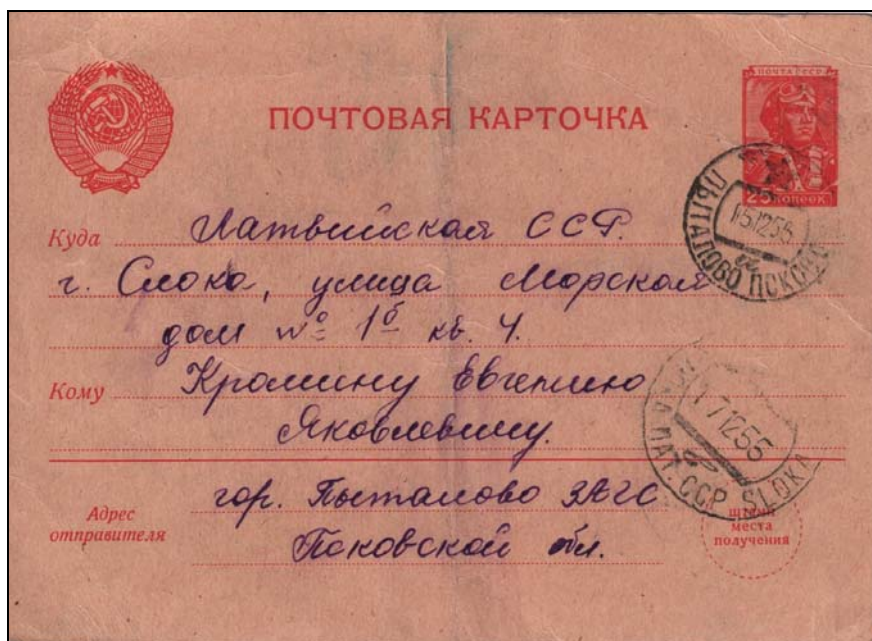 ПОЧТА СССР
ПОЧТОВАЯ КАРТОЧКА
25 КОПЕЕК
ПЫТАЛОВО ПСКОВС
151255
Куда Латвийская ССР.
г. Слока, улица Морская
дом № 1б кв. 4.
Кому Кромину Евгению
Яковлевичу.
171255
ЛАТ. ССР SLOKA
Адрес отправителя
гор. Пыталово ЗАГС
Псковской обл.
места
получения